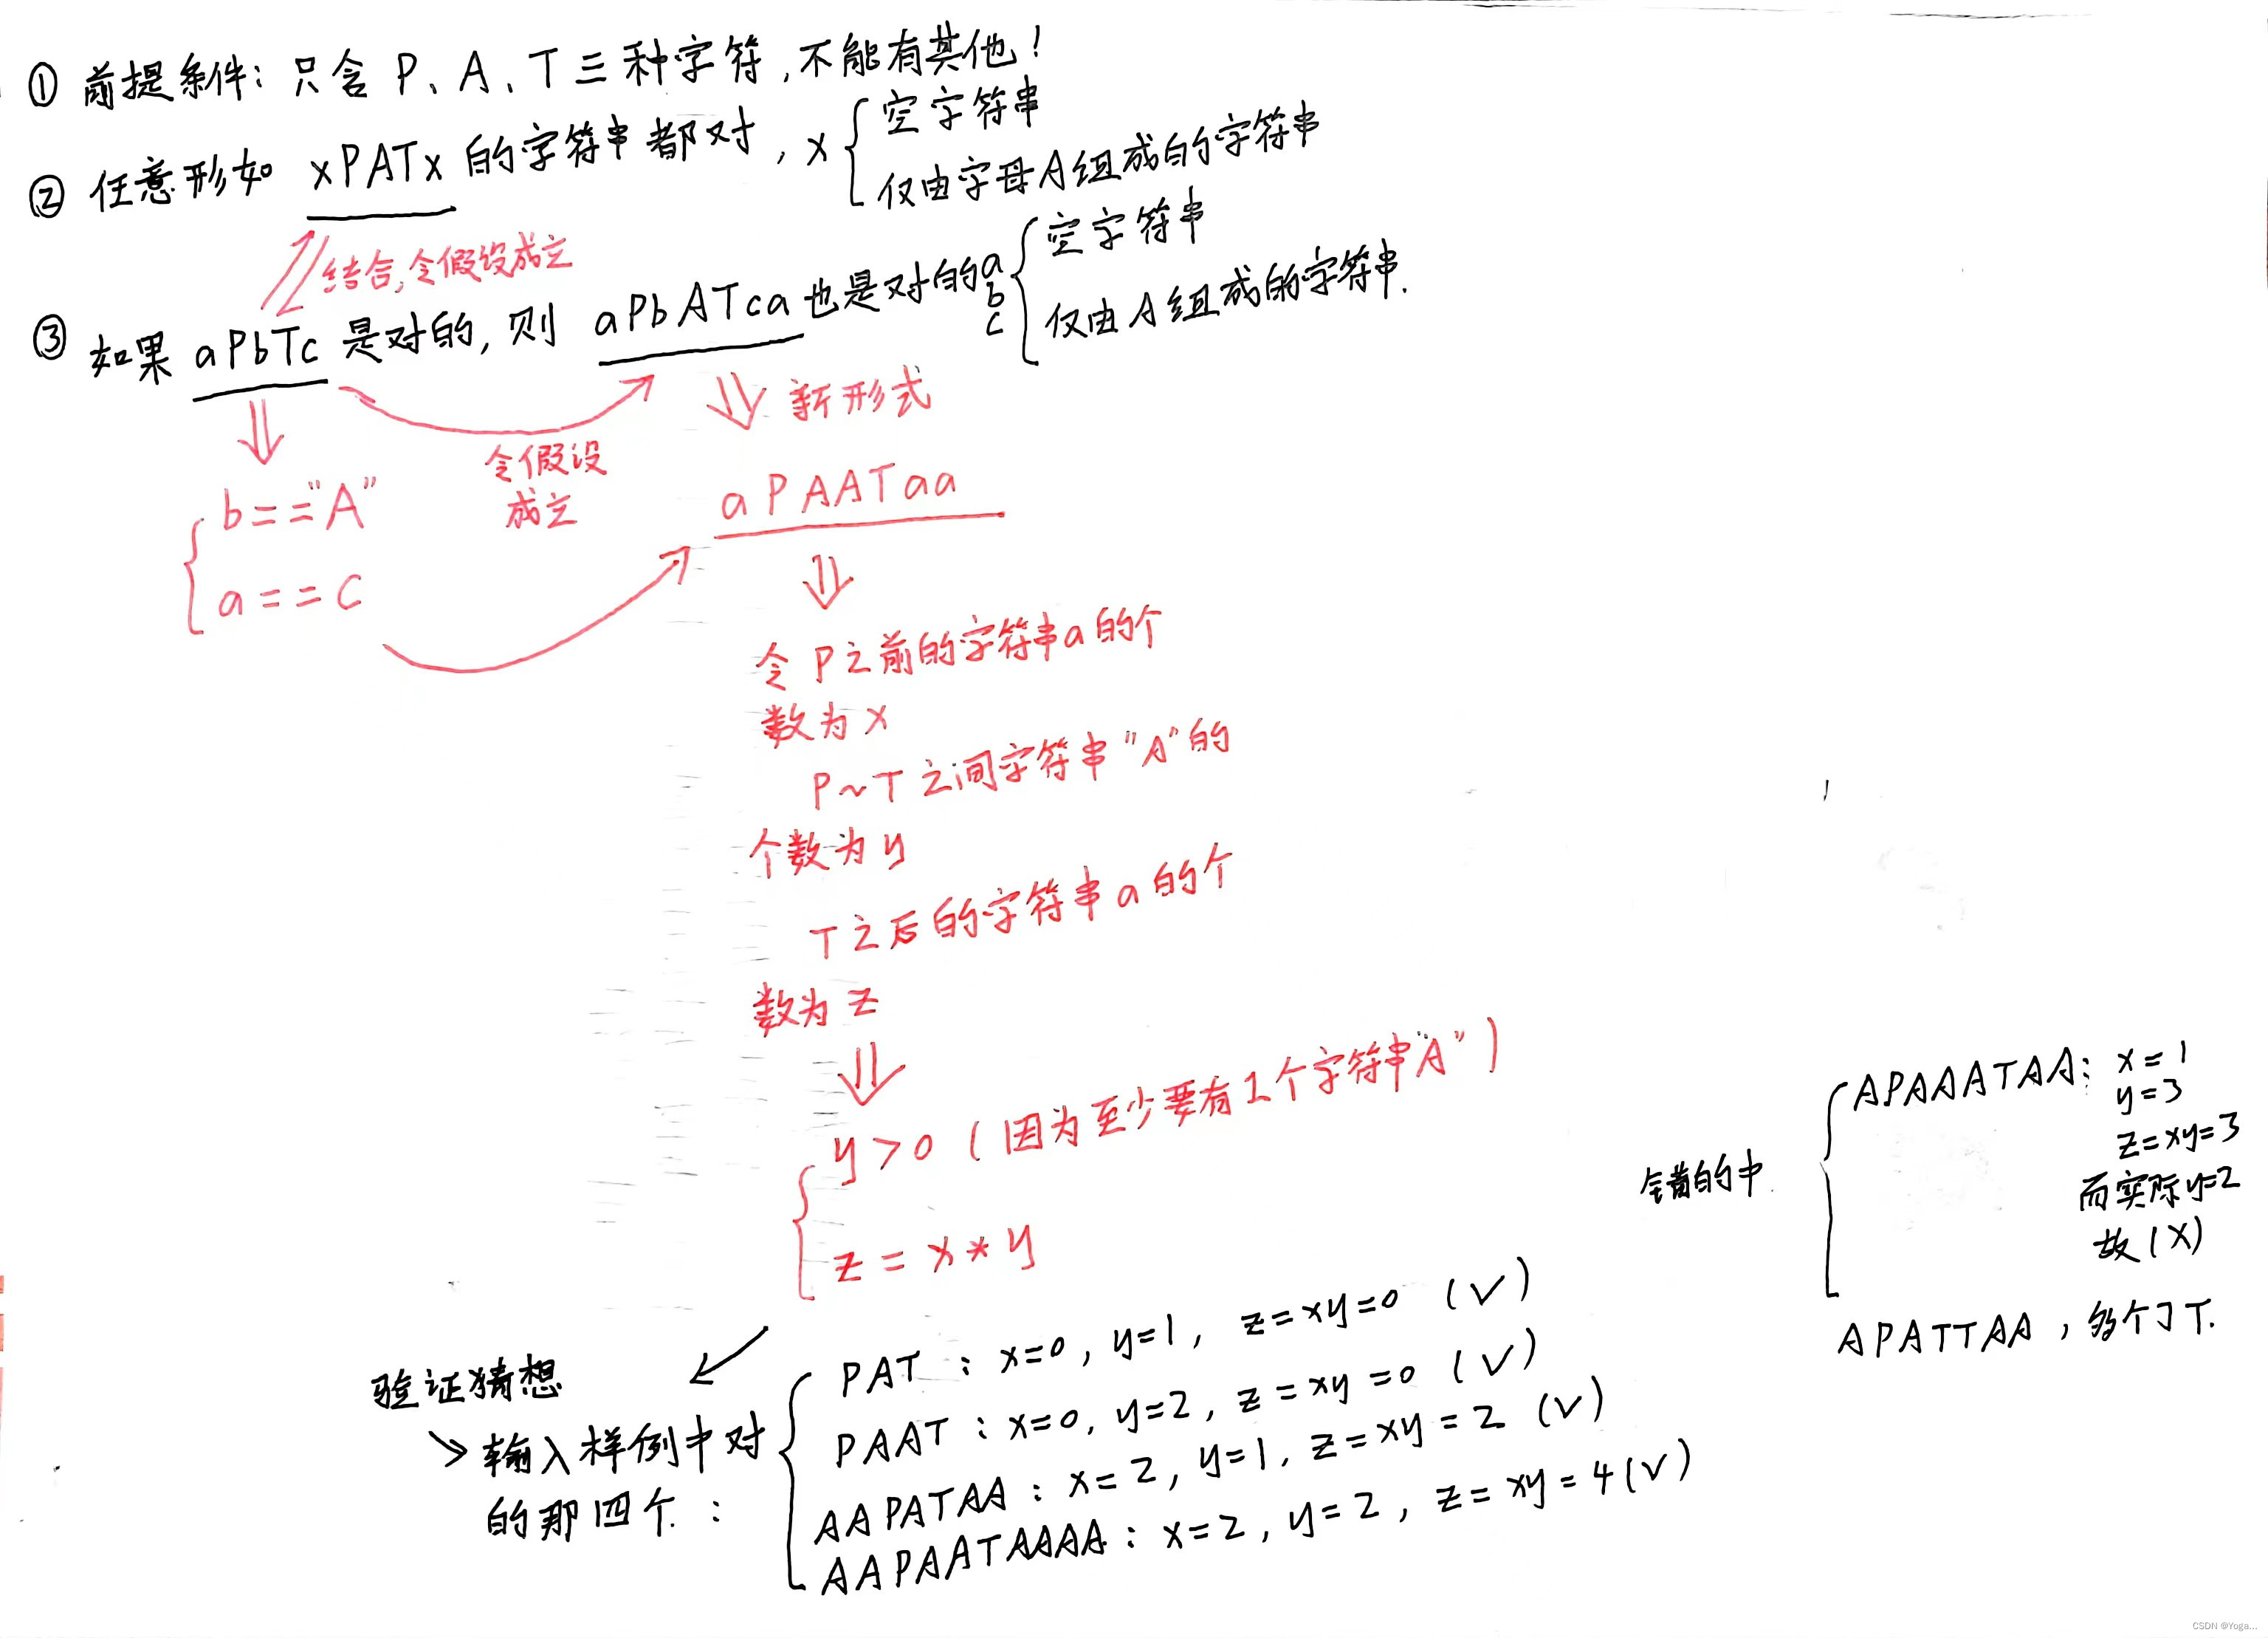 ① 前提条件：只含 P、A、T 三种字符，不能有其他！
② 任意形如 xPATx 的字符串都对，x { 空字符串
仅由字母A组成的字符串
结合，令假设成立
③ 如果 aPbTc 是对的，则 aPbATca 也是对的 a b c { 空字符串
仅由A组成的字符串.
新形式
令假设
成立
b=="A"
a==c
aPAATaa
令P之前的字符串a的个
数为x
P~T之间字符串"A"的
个数为y
T之后的字符串a的个
数为z
y>0（因为至少要有1个字符串"A"）
z=x*y
错的中
APAAATAA: x=1
y=3
z=xy=3
而实际y=2
故(X)
APATTAA，多个了T.
验证猜想
输入样例中对
的那四个：
PAT : x=0, y=1, z=xy=0 (√)
PAAT : x=0, y=2, z=xy=0 (√)
AAPATAA : x=2, y=1, z=xy=2 (√)
AAPAATAAAA : x=2, y=2, z=xy=4 (√)
CSDN @Yoga...